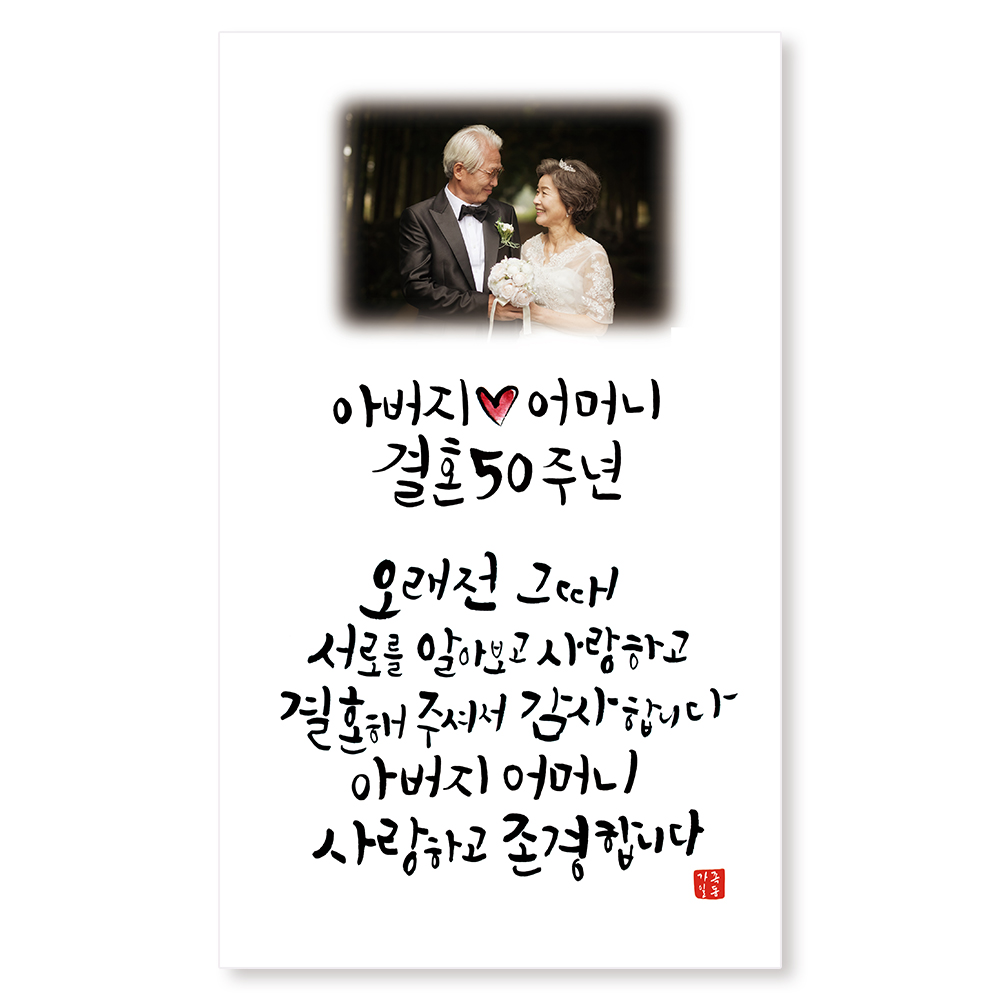 아버지♥어머니
결혼50주년
오래전 그때
서로를 알아보고 사랑하고
결혼해 주셔서 감사합니다
아버지 어머니
사랑하고 존경합니다
가족
일동